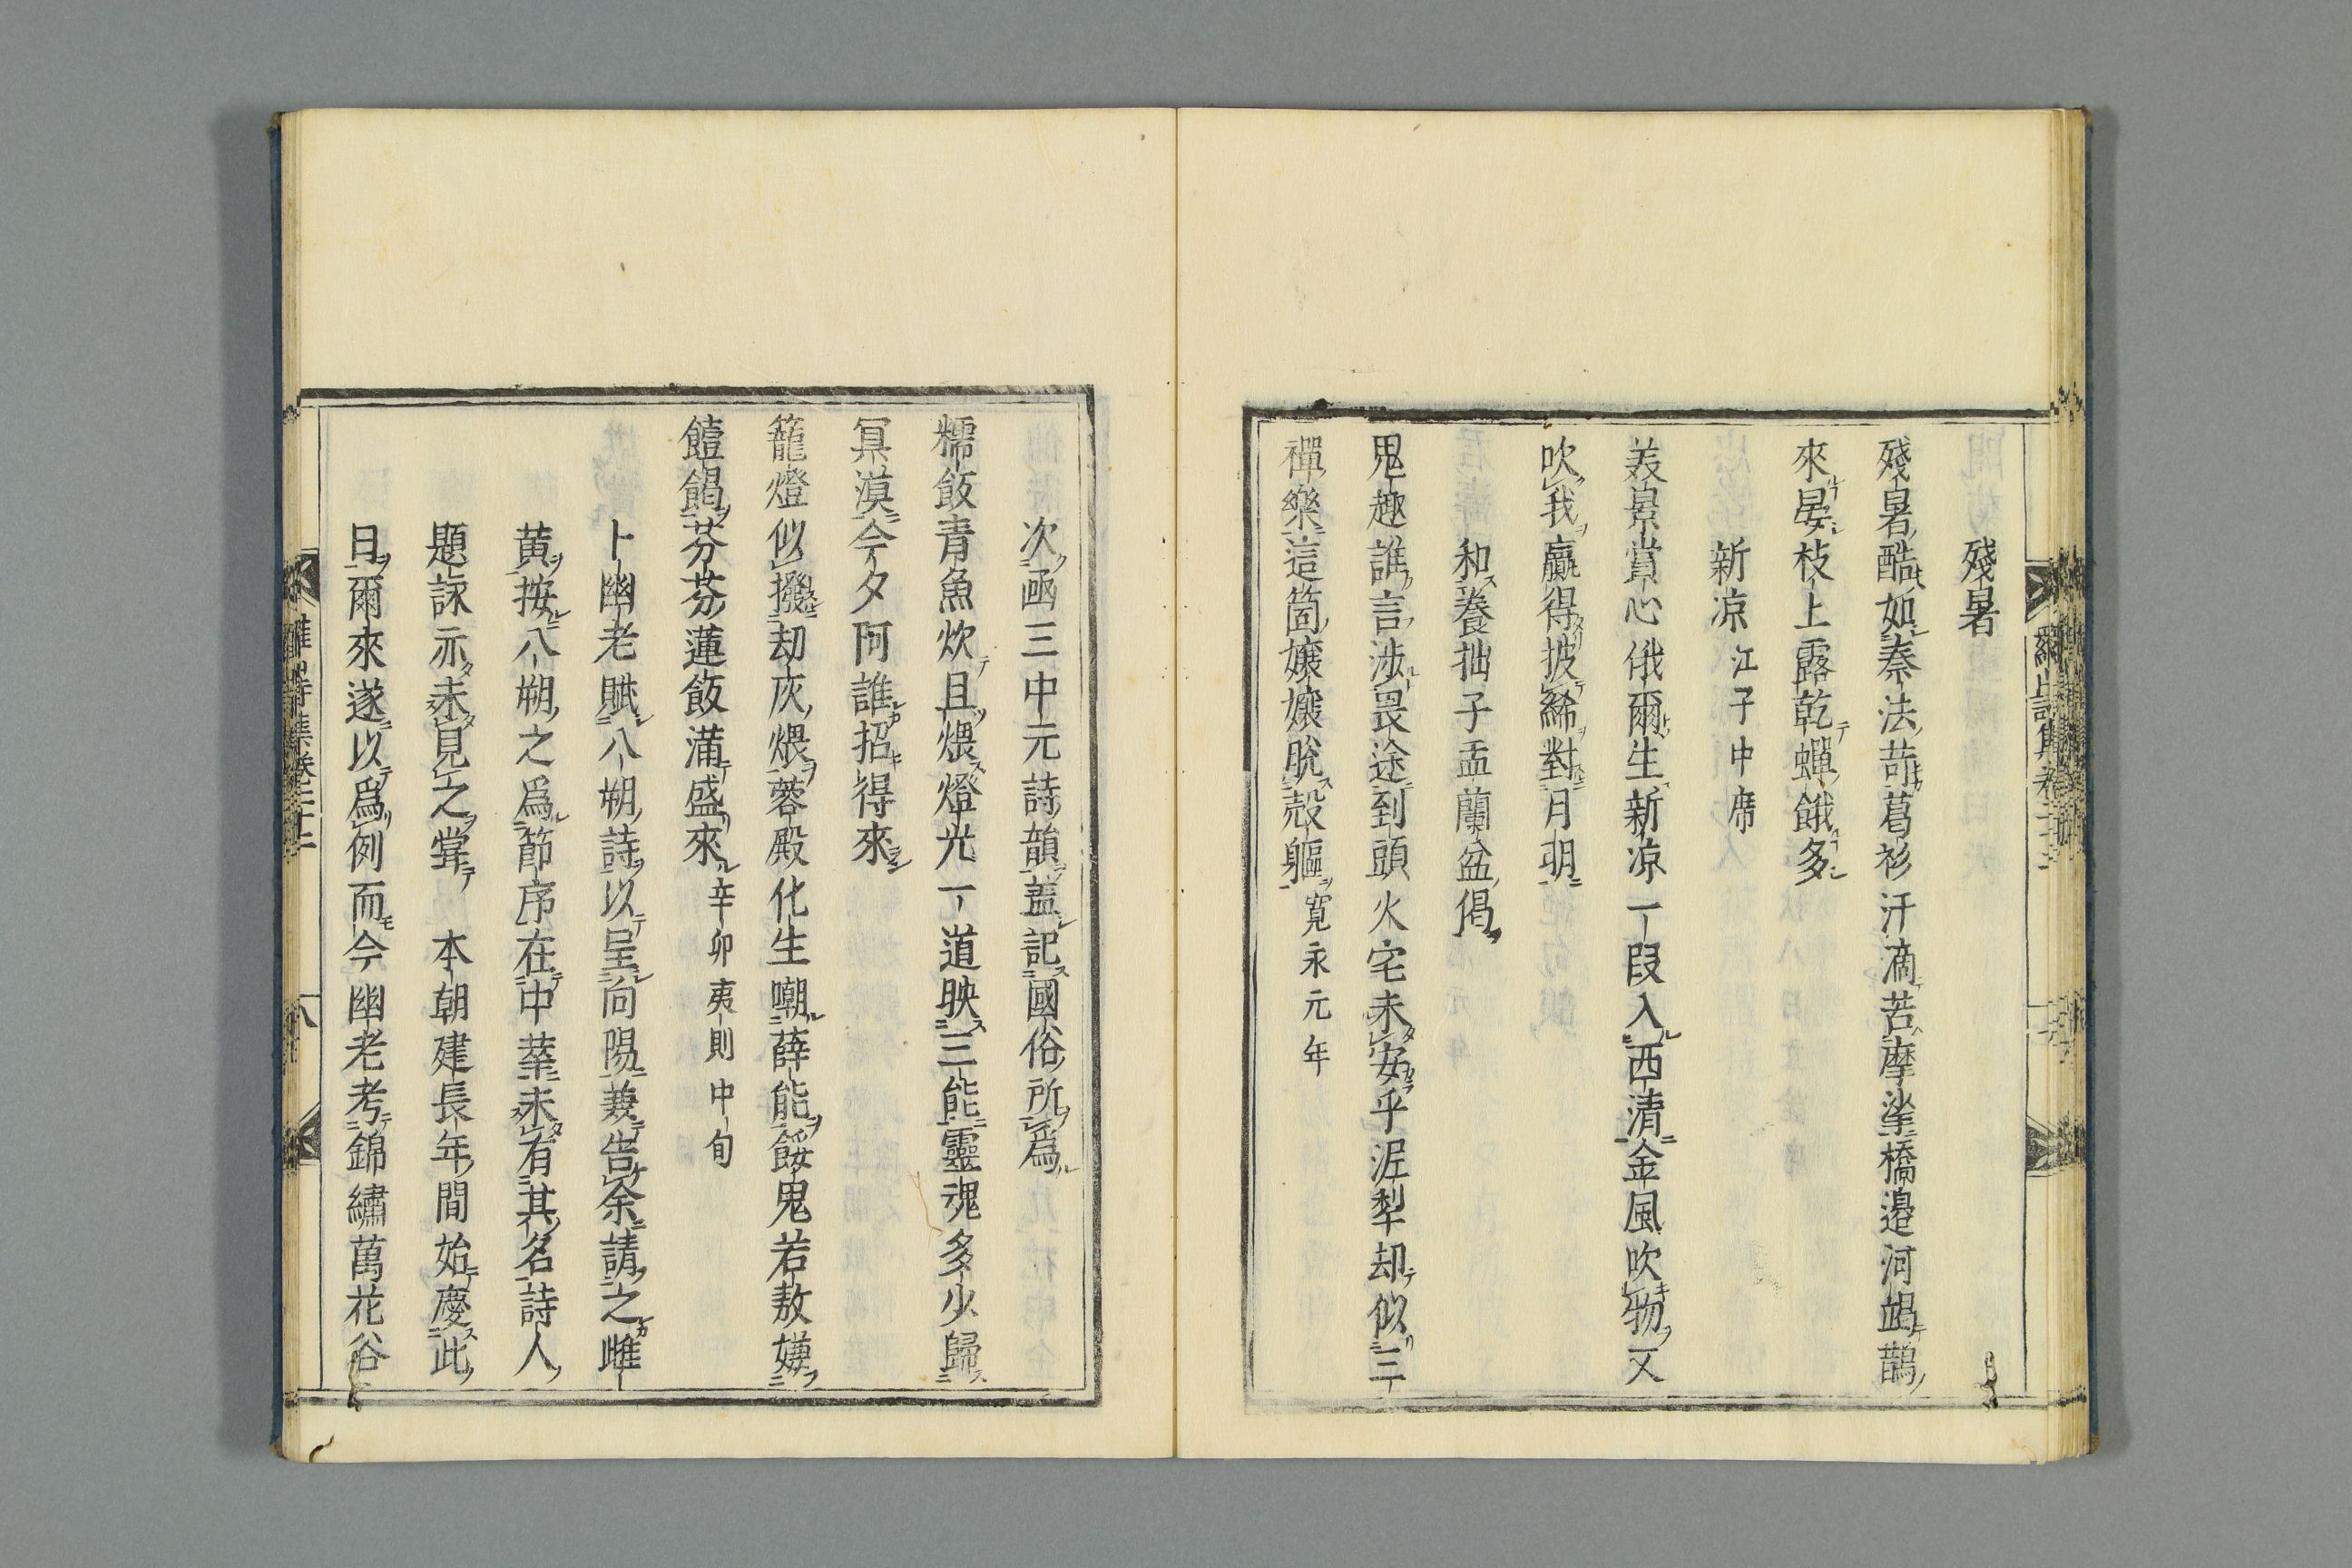 殘暑
殘暑酷如秦法苛葛衫汗滴苦摩挲橋邊河竭鵲
來晏枝上露乾蟬餓多
新凉 江子中席
美景賞心俄爾生新凉一段入西清金風吹物又
吹我贏得披絺對月明
和養拙子盂蘭盆偈
鬼趣誰言涉畏途到頭火宅未安乎泥犁却似三
禪樂這箇孃孃脫殼軀 寬永元年
次函三中元詩韻蓋記國俗所爲
糯飯青魚炊且煨燈光一道映三能靈魂多少歸
冥漠今夕阿誰招得來
籠燈似撥劫灰煨蓉殿化生嘲薛能餒鬼若敖媄
饐餲芬芬蓮飯滿盛來 辛卯夷則中旬
卜幽老賦八朔詩以呈向陽兼告余請之雌
黄按八朔之爲節序在中華未有其名詩人
題詠亦未見之耳 本朝建長年間始慶此
日爾來遂以爲例而今幽老考錦繡萬花谷